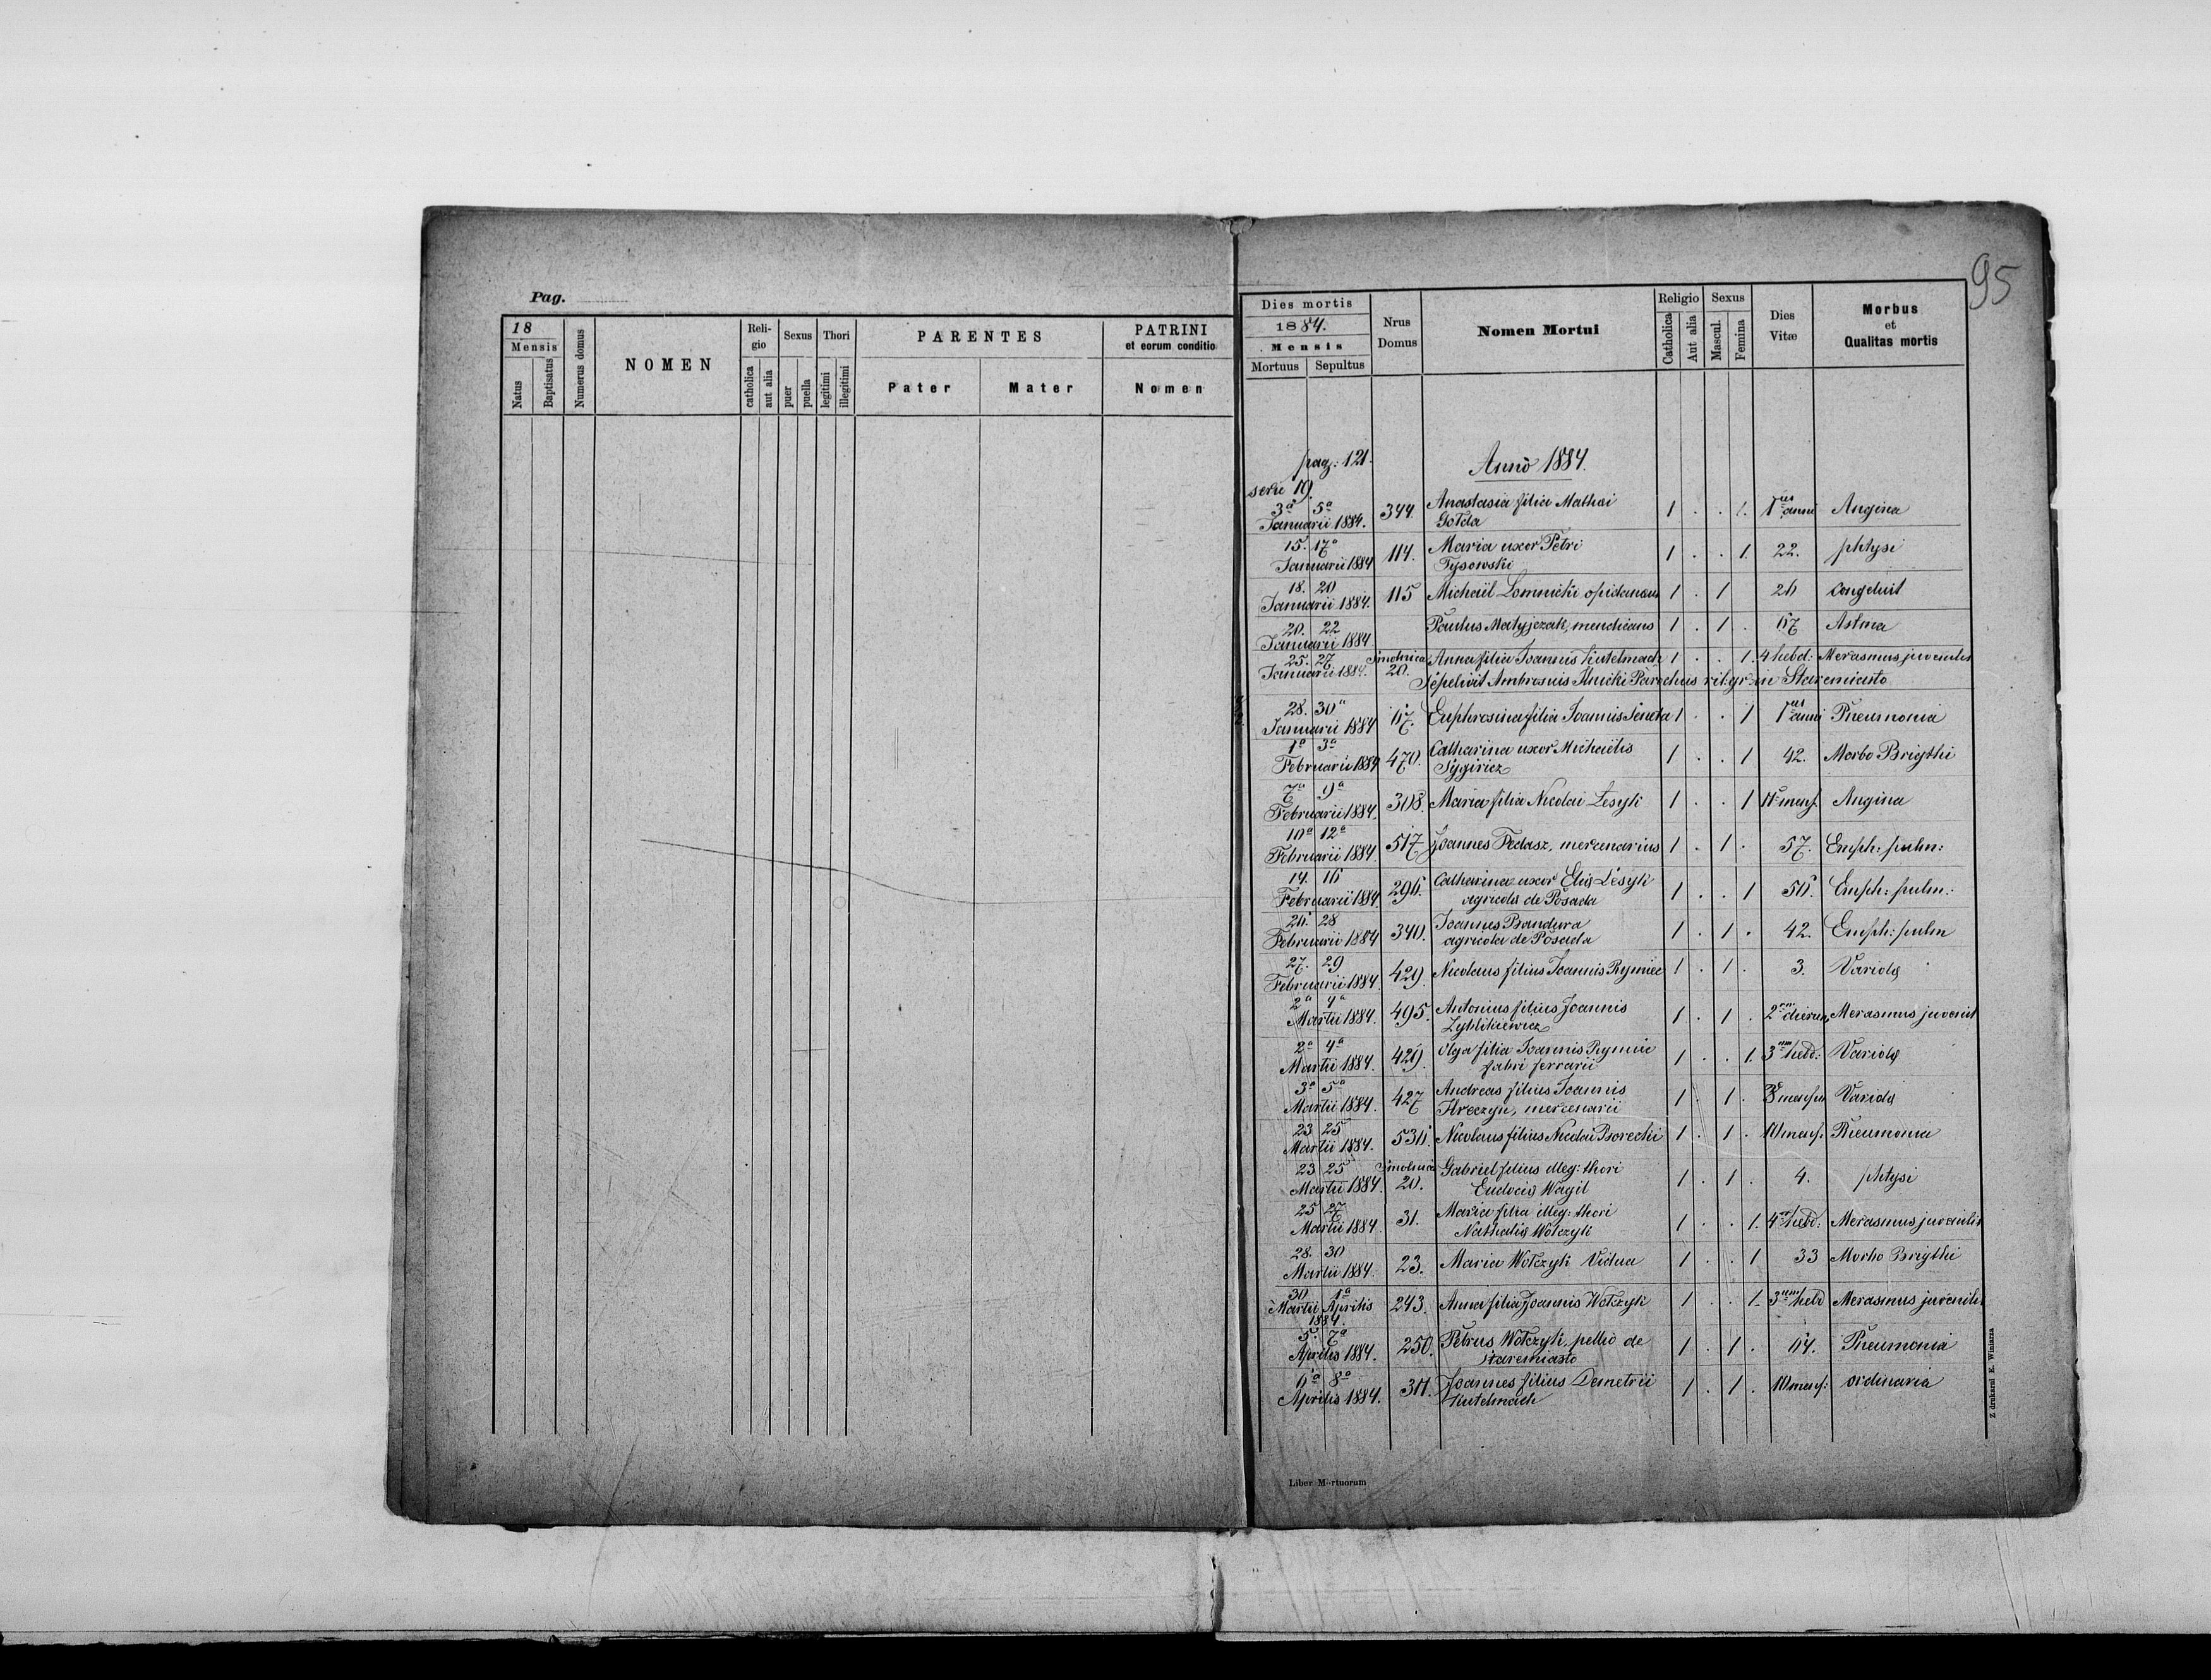 Pag.
18
Mensis
Natus
Baptisatus
Numerus domus
NOMEN
Reli-
gio
catholica
aut alia
Sexus
puer
puella
Thori
legitimi
illegitimi
PARENTES
Pater
Mater
PATRINI
et eorum conditio
Nomen
95
Dies mortis
1884.
Mensis
Mortuus Sepultus
Nrus
Domus
Nomen Mortui
Religio
Catholica
Aut alia
Sexus
Mascul.
Femina
Dies
Vitæ
Morbus
et
Qualitas mortis
pag: 121.
Anno 1884.
serie 19.
3a 5a
Januarii 1884. 344. Anastasia filia Mathæi 1 . . 1. 1us anni Angina
Gołda
15. 17a
Januarii 1884 114. Maria uxor Petri 1 . . 1. 22. phtysi
Tysowski
18. 20
Januarii 1884. 115 Michaël Łomnicki 1 . 1 26
20. 22
Januarii 1884 Paulus Matyjczak, mendicans 1 . 1 . 67 Astma
25. 27
Januarii 1884. Smolnica 20. Anna filia Joannis Kutelmach 1 . . 1. 4 hebd: Merasmus juvenilis
Sepelivit Ambrosius Ilnicki Parochus rit: gr: in Staremiasto
28. 30a
Januarii 1884 67. Euphrosina filia Joannis 1 . . 1 1us anni Pneumonia
1a 3a
Februarii 1884 470. Catharina uxor Michaëlis 1 . . 1 42. Morbo Brigthi
7a 9a
Februarii 1884. 308. Maria filia Nicolai Lesyk 1 . . 1 Angina
10a 12a
Februarii 1884. 517 Joannes Fedasz, mercenarius 1 . 1 . 57. Emph: pulm:
14. 16
Februarii 1884. 296. Catharina uxor Eliæ Lesyk 1 . . 1 56. Emph: pulm.:
agricola de Posada
26. 28
Februarii 1884 340. Joannes Bandura 1 . 1 . 42. Emph: pulm
agricola de Posada
27. 29
Februarii 1884. 429. Nicolaus filius Joannis Rymiec 1 . 1 . 3. Variola
2a 4a
Martii 1884. 495. Antonius filius Joannis 1 . 1 . 2 dierum Merasmus juvenil
Zyblikiewicz
2a 4a
Martii 1884. 429. Olga filia Joannis Rymiec 1 . . 1. 3um hebd: Variola
fabri ferrarii
3a 5a
Martii 1884. 427 Andreas filius Joannis 1 . 1 . Variola
Hreczyn, mercenarii
23 25
Martii 1884. 536. Nicolaus filius Nicolai Borecki 1 . 1 . Pneumonia
23 25
Martii 1884. Smolnica 20. Gabriel filius illeg: thori 1 . 1 . 4. phtysi
Eudociæ Wagil
25 27
Martii 1884 31. Maria filia illeg: thori 1 . . 1. 4 hebd. Merasmus juvenilis
Nathaliæ Wołczyk
28. 30
Martii 1884. 23. Maria Wołczyk Vidua 1 . . 1 33 Morbo Brigthi
30 1a
Martii Aprilis 243. Anna filia Joannis Wołczyk 1 . . 1. 3um hebd Merasmus juvenilis
1884.
5. 7a
Aprilis 1884. 250. Petrus Wołczyk, pellio de 1 . 1 . 64. Pneumonia
Staremiasto
6a 8a
Aprilis 1884. Joannes filius Demetrii 1 . 1 . ordinaria
Kutelmach
Liber Mortuorum
Z drukarni E. Winiarza